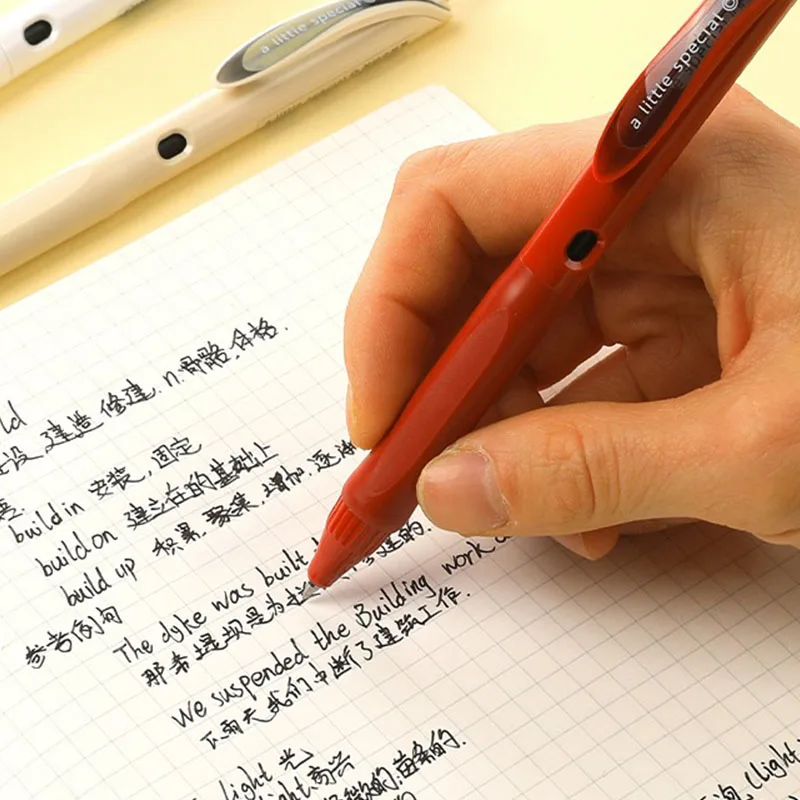 a little special
a little special ©
ld
建造 修建. n.骨骼,体格.
build in 安装,固定
build on 建立在的基础上
build up 积累,聚集,增加,逐
参考例句
The dyke was built
那条堤坝是为 建的.
We suspended the Building work
下雨天我们中断了建筑工作.
light 光
高兴
(light